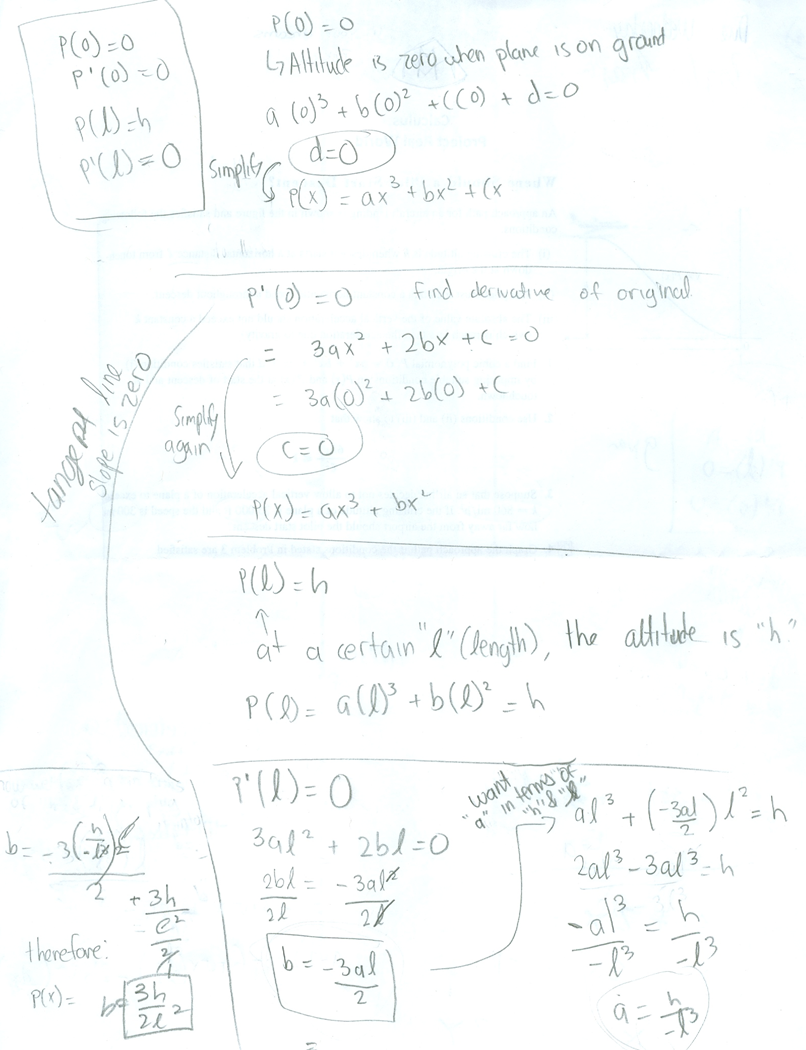 P(0)=0
P'(0)=0
P(l)=h
P'(l)=0
P(0)=0
↳Altitude is zero when plane is on ground
a(0)³+b(0)²+C(0)+d=0
d=0
Simplify
P(x)=ax³+bx²+Cx
P'(0)=0 find derivative of original
= 3ax²+2bx+C=0
= 3a(0)²+2b(0)+C
Simplify
again
C=0
P(x)=ax³+bx²
tangent line
slope is zero
P(l)=h
↑
at a certain "l" (length), the altitude is "h."
P(l)= a(l)³+b(l)²=h
P'(l)=0
3al²+2bl=0
2bl/2l = -3al²/2l
b=-3al/2
=
want
"a" in terms of
"h" & "l"
al³+(-3al/2)l²=h
2al³-3al³=h
-al³/-l³ = h/-l³
a=h/-l³
b=-3(h/-l³)l/2
+3h/l²
2/1
therefore:
P(x)= b=3h/2l²